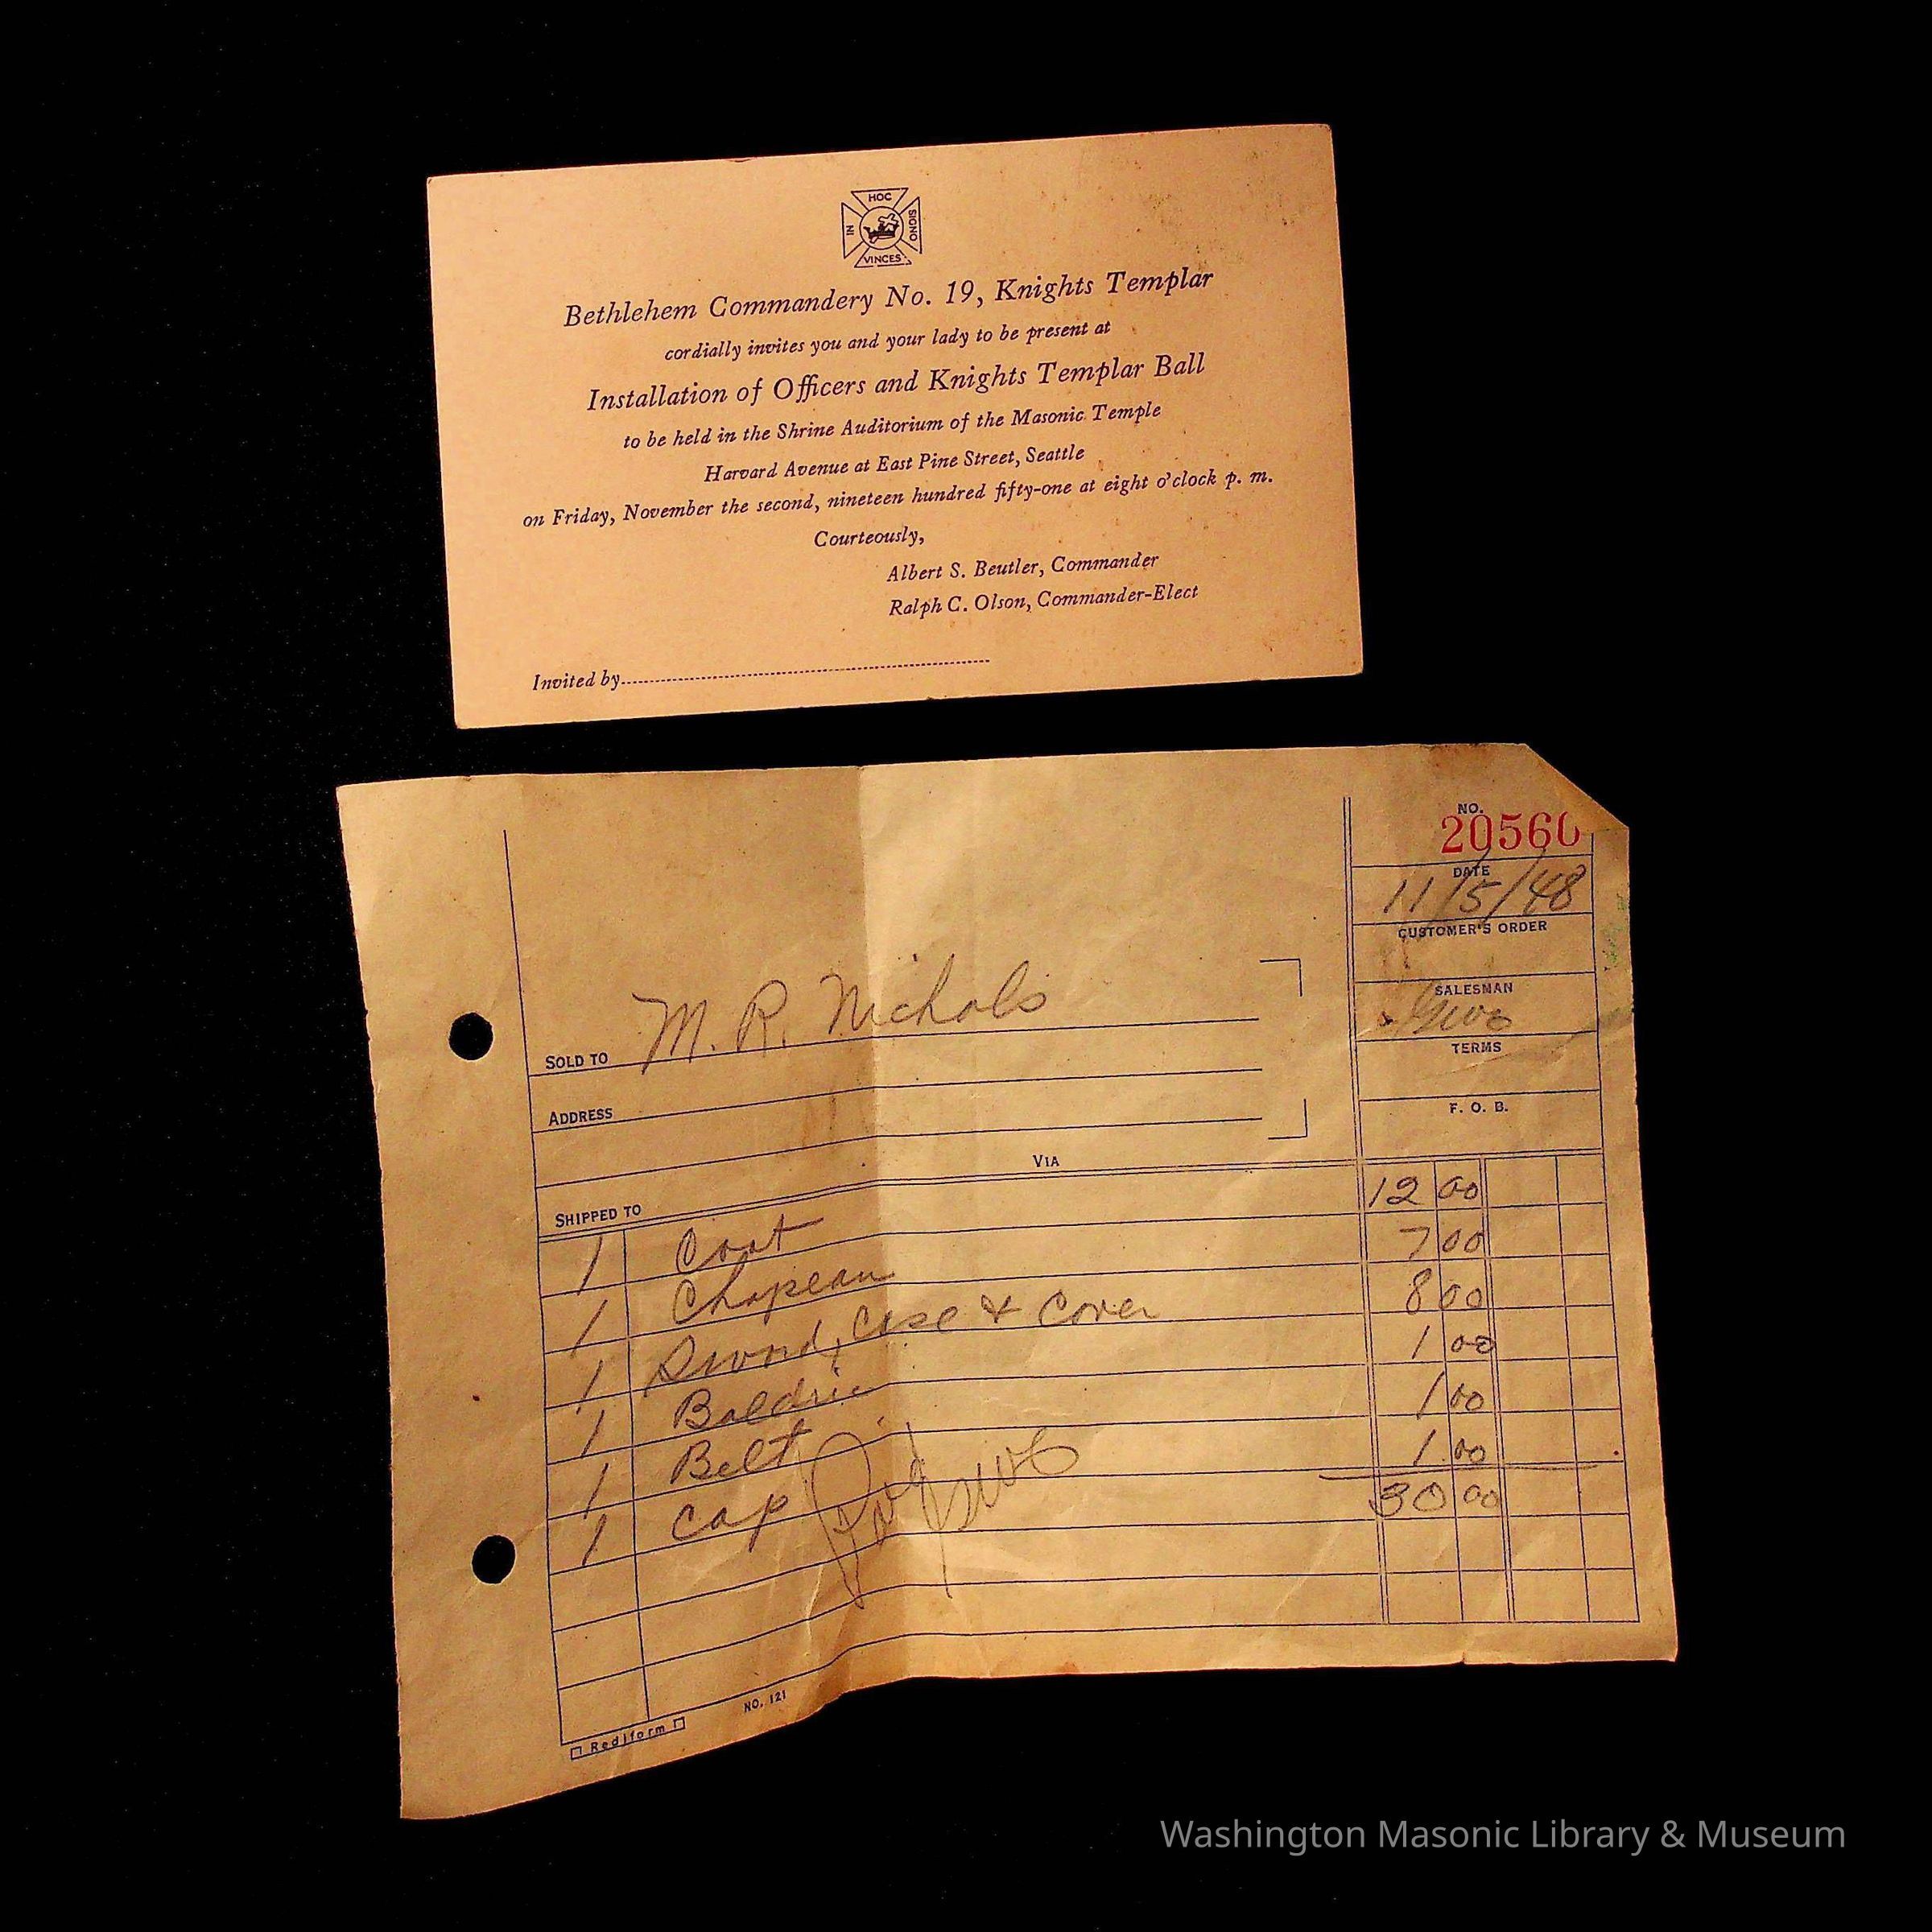 IN HOC SIGNO VINCES
Bethlehem Commandery No. 19, Knights Templar
cordially invites you and your lady to be present at
Installation of Officers and Knights Templar Ball
to be held in the Shrine Auditorium of the Masonic Temple
Harvard Avenue at East Pine Street, Seattle
on Friday, November the second, nineteen hundred fifty-one at eight o'clock p. m.
Courteously,
Albert S. Beutler, Commander
Ralph C. Olson, Commander-Elect
Invited by
NO.
DATE
11/5/48
CUSTOMER'S ORDER
SALESMAN
TERMS
F. O. B.
SOLD TO M. R. Nichols
ADDRESS
VIA
SHIPPED TO
1 Coat 12 00
1 Chapeau 7 00
1 Sword, Case & Cover 8 00
1 Baldric 1 00
1 Belt 1 00
1 Cap 1.00
30 00
Rediform
NO. 121
Washington Masonic Library & Museum